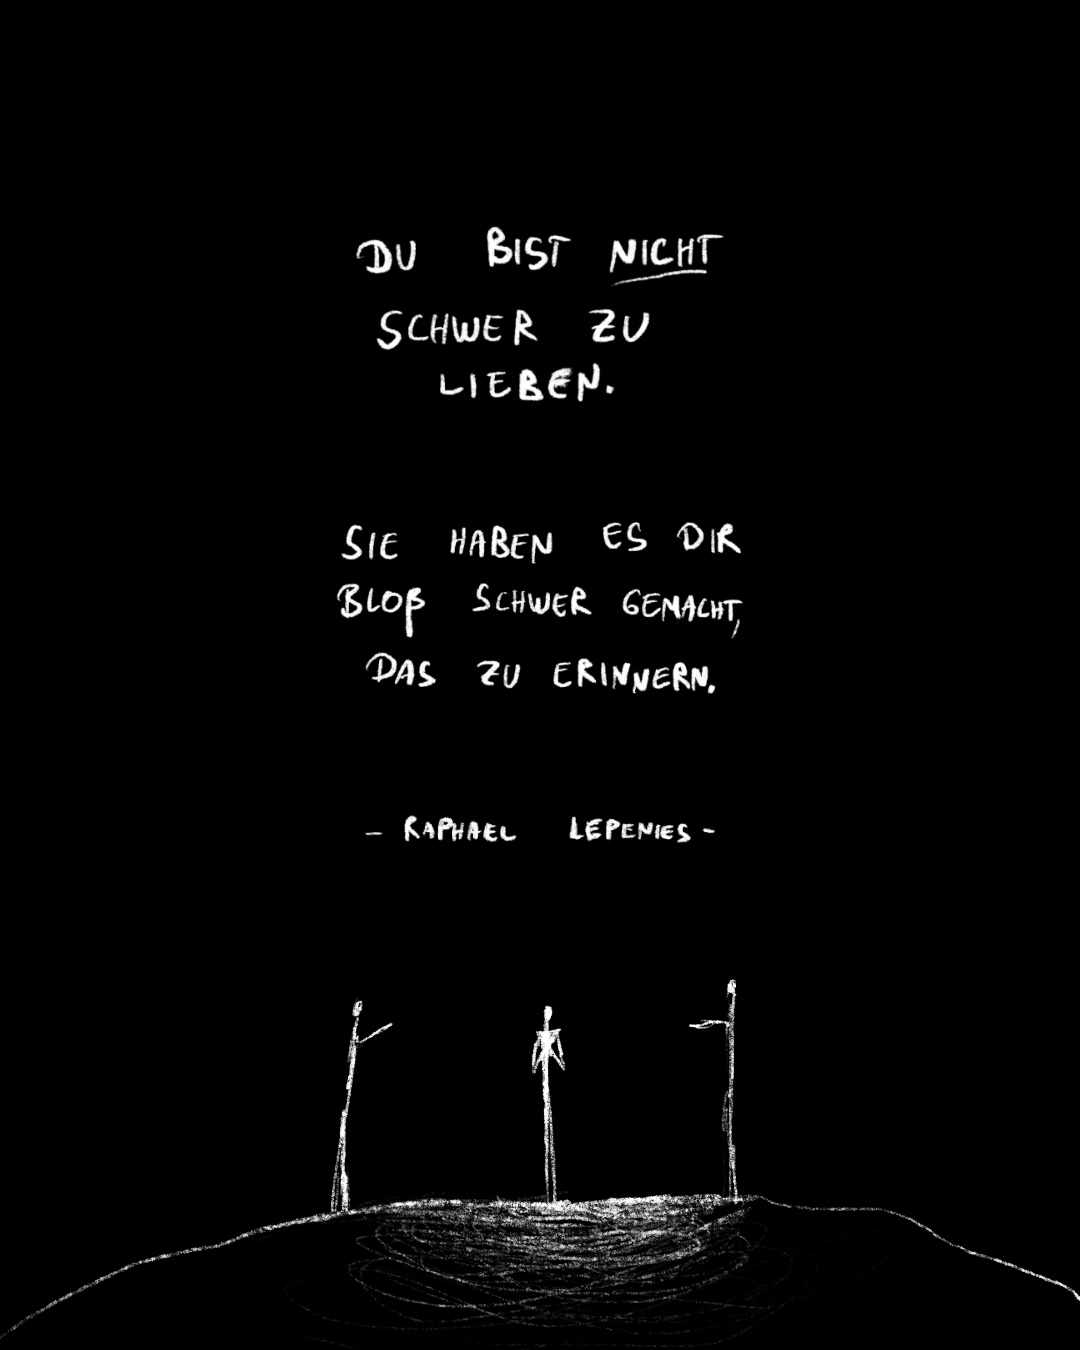 DU BIST NICHT
SCHWER ZU
LIEBEN.
SIE HABEN ES DIR
BLOß SCHWER GEMACHT,
DAS ZU ERINNERN.
– RAPHAEL LEPENIES –